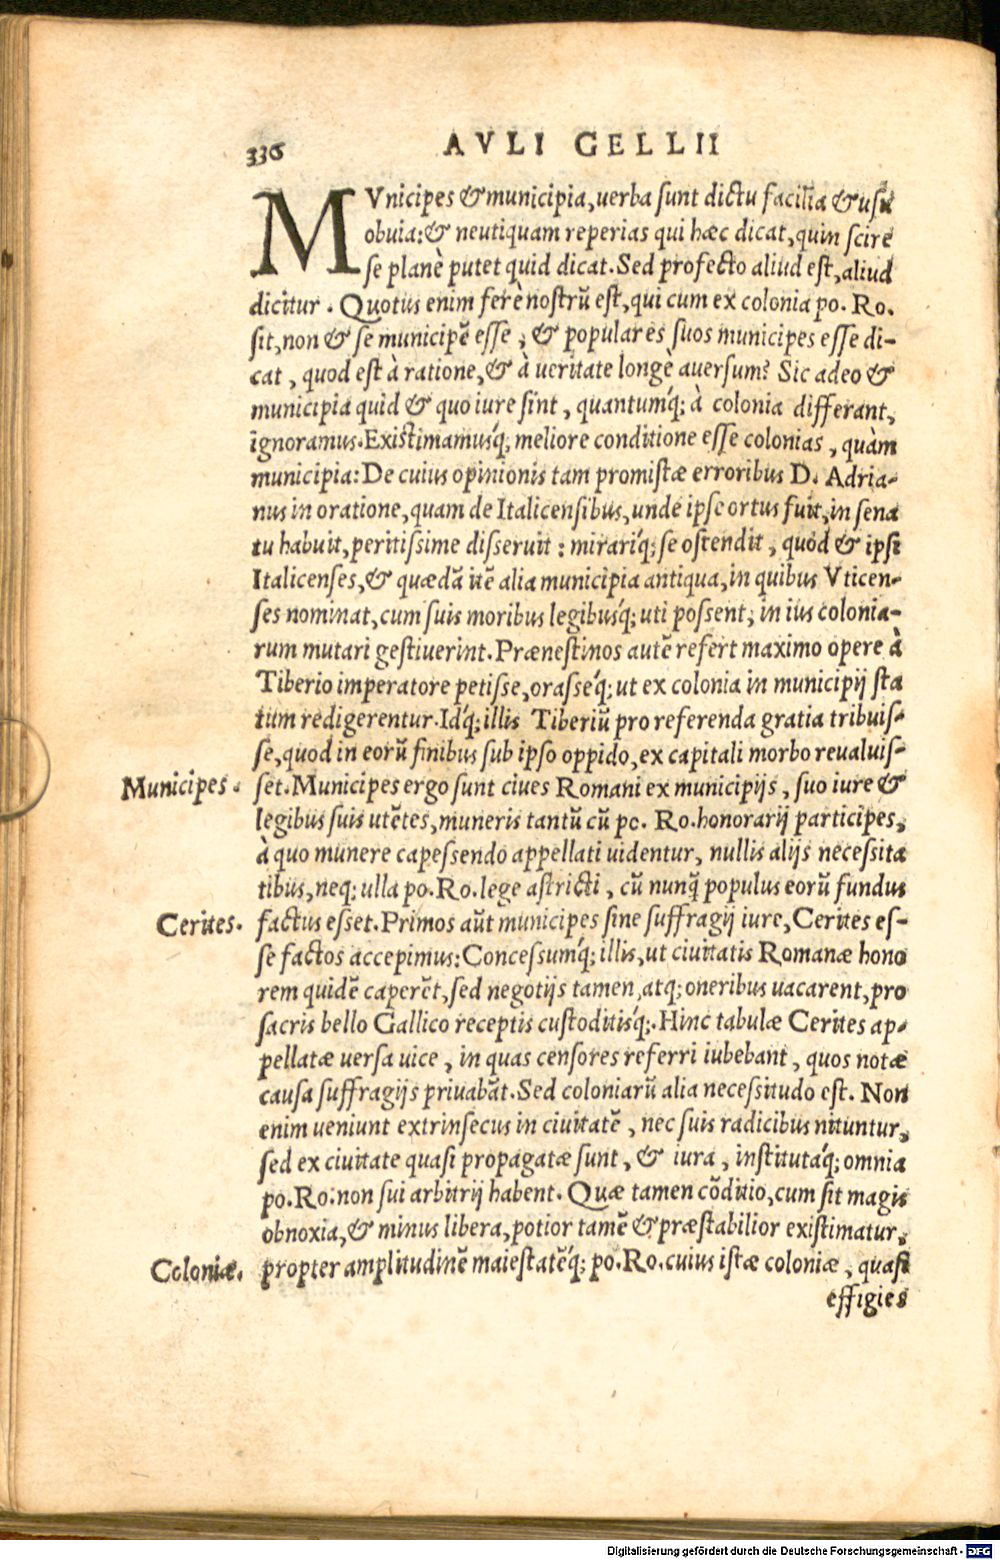 336
AVLI GELLII
MVnicipes & municipia, uerba sunt dictu facilia & usu
obuia: & neutiquam reperias qui hæc dicat, quin scire
se planè putet quid dicat. Sed profecto aliud est, aliud
dicitur. Quotus enim ferè nostrū est, qui cum ex colonia po. Ro.
sit, non & se municipē esse; & populares suos municipes esse di-
cat, quod est à ratione, & à ueritate longè auersum? Sic adeo &
municipia quid & quo iure sint, quantumq́; à colonia differant,
ignoramus. Existimamusq́; meliore conditione esse colonias, quàm
municipia: De cuius opinionis tam promistæ erroribus D. Adria-
nus in oratione, quam de Italicensibus, unde ipse ortus fuit, in sena
tu habuit, peritissime disseruit: mirariq́; se ostendit, quòd & ipsi
Italicenses, & quædā itē alia municipia antiqua, in quibus Vticen-
ses nominat, cum suis moribus legibusq́; uti possent, in ius colonia-
rum mutari gestiuerint. Prænestinos autē refert maximo opere à
Tiberio imperatore petisse, orasseq́; ut ex colonia in municipij sta
tum redigerentur. Idq́; illis Tiberiū pro referenda gratia tribuis-
se, quod in eorū finibus sub ipso oppido, ex capitali morbo reualuis-
Municipes. set. Municipes ergo sunt ciues Romani ex municipijs, suo iure &
legibus suis utētes, muneris tantū cū po. Ro. honorarij participes,
à quo munere capessendo appellati uidentur, nullis alijs necessita
tibus, neq; ulla po. Ro. lege astricti, cū nunq̄ populus eorū fundus
Cerites. factus esset. Primos aūt municipes sine suffragij iure, Cerites es-
se factos accepimus: Concessumq́; illis, ut ciuitatis Romanæ hono
rem quidē caperēt, sed negotijs tamen, atq; oneribus uacarent, pro
sacris bello Gallico receptis custoditisq́;. Hinc tabulæ Cerites ap-
pellatæ uersa uice, in quas censores referri iubebant, quos notæ
causa suffragijs priuabāt. Sed coloniarū alia necessitudo est. Non
enim ueniunt extrinsecus in ciuitatē, nec suis radicibus nituntur,
sed ex ciuitate quasi propagatæ sunt, & iura, institutaq́; omnia
po. Ro. non sui arbitrij habent. Quæ tamen cōditio, cum sit magis
obnoxia, & minus libera, potior tamē & præstabilior existimatur,
Coloniæ. propter amplitudinē maiestatēq́; po. Ro. cuius istæ coloniæ, quasi
effigies
Digitalisierung gefördert durch die Deutsche Forschungsgemeinschaft - DFG